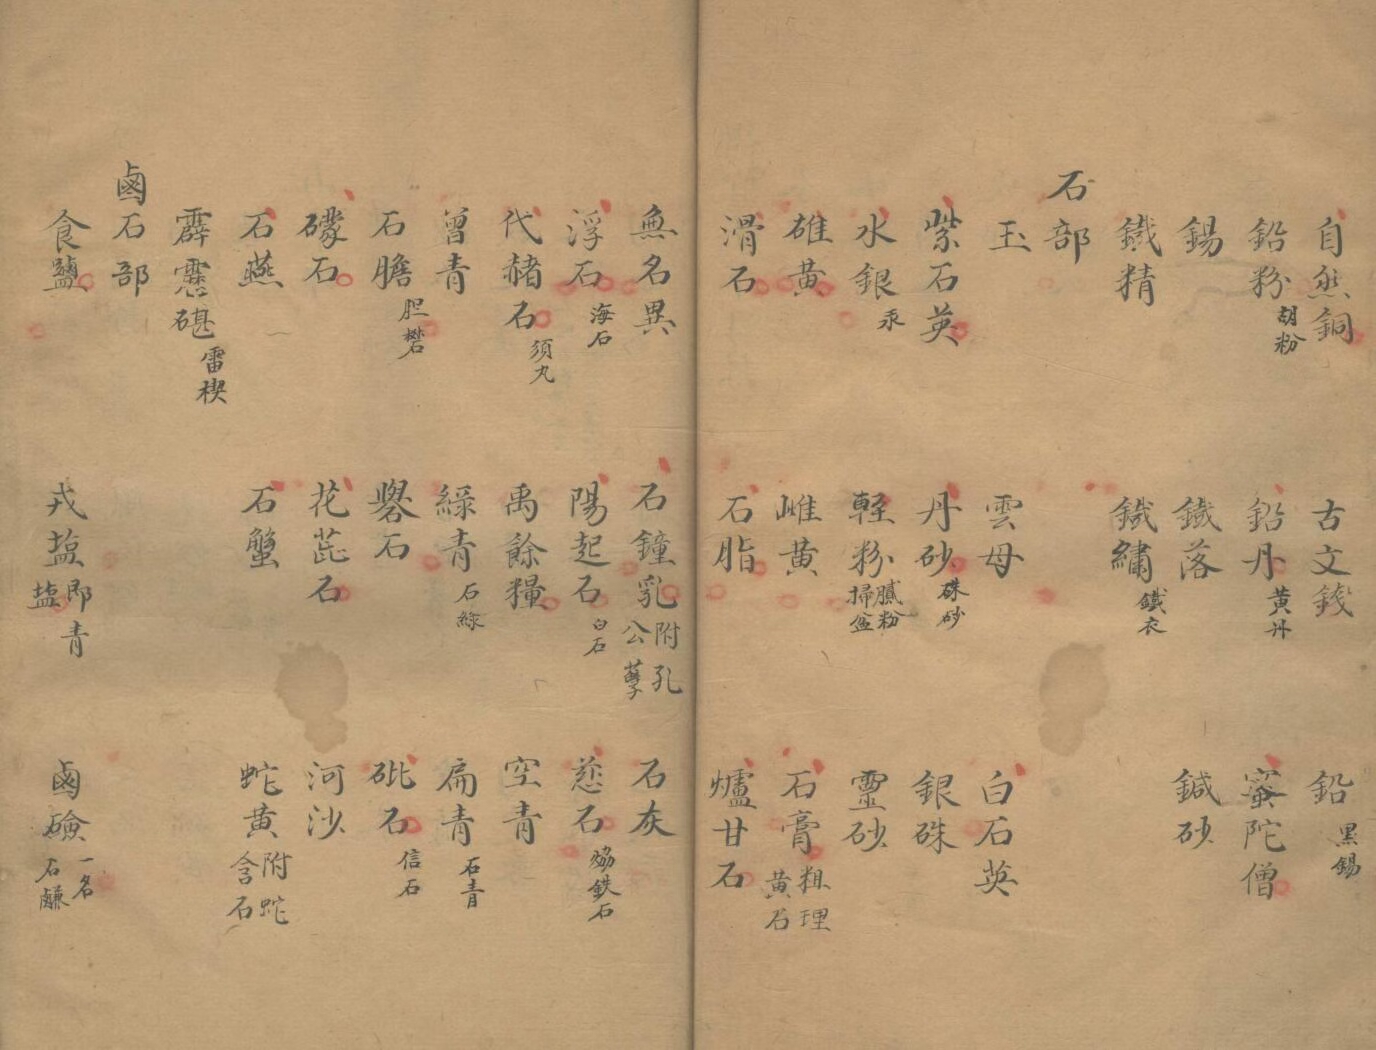 自然銅 古文錢 鉛 黑錫
鉛粉 胡粉 鉛丹 黃丹 蜜陀僧
錫 鐵落 鍼砂
鐵精 鐵繡 鐵衣
石部
玉 雲母 白石英
紫石英 丹砂 硃砂 銀硃
水銀 汞 輕粉 膩粉 掃盆 靈砂
雄黃 雌黃 石膏 粗理黃石
滑石 石脂 爐甘石
無名異 石鐘乳 附孔公孽 石灰
浮石 海石 陽起石 白石 慈石 熁鉄石
代赭石 須丸 禹餘糧 空青
曾青 綠青 石綠 扁青 石青
石膽 胆礬 礜石 砒石 信石
礞石 花蕋石 河沙
石燕 石蟹 蛇黃 附蛇含石
霹靂碪 雷楔
鹵石部
食鹽 戎塩 即青塩 鹵礆 一名石鹻